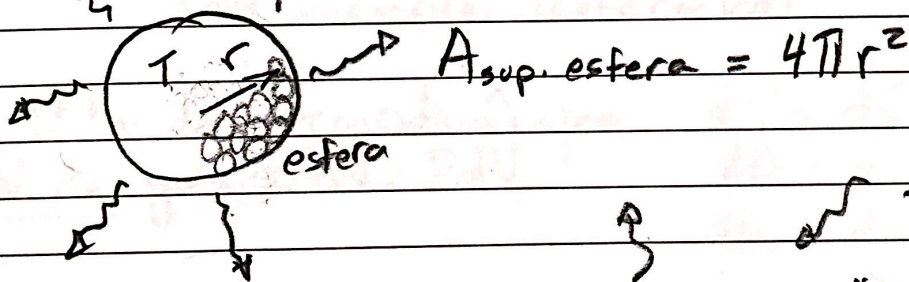 T r
A sup. esfera = 4πr²
esfera